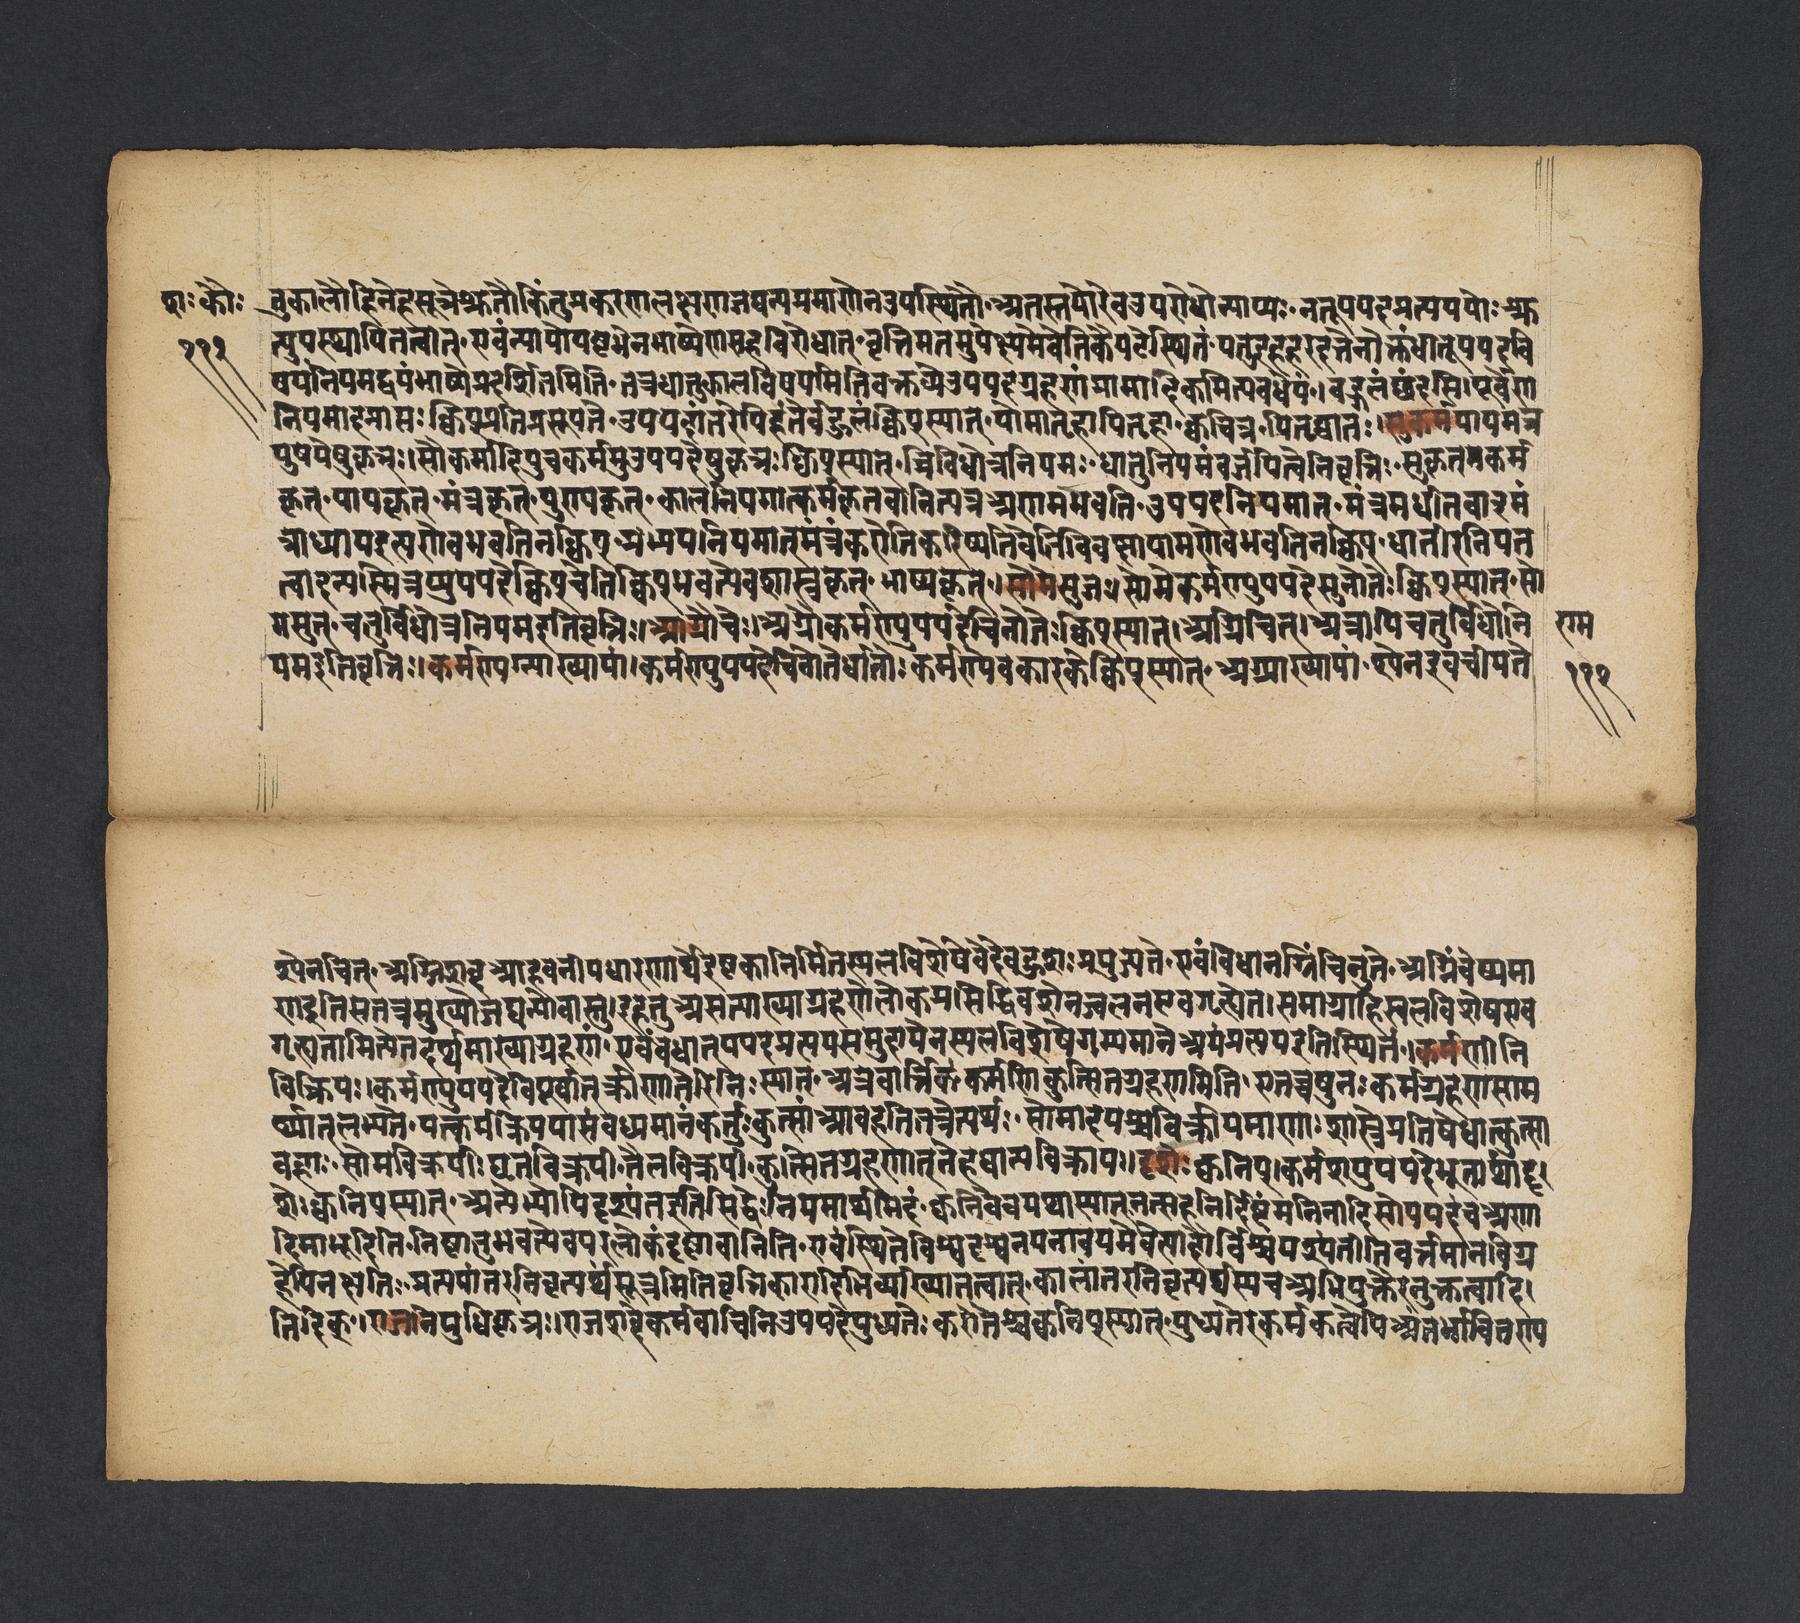 शः कौः
१११
वुकालौ हि नेह सूत्रे श्रुतौ किंतु प्रकरणालभ्येणाजघन्यप्रमाणेन उपस्थितौ अतस्तयोरेव उपरोधो न्याय्यः ननूपपदप्रत्यययोः श्रु
त्युपस्थापितत्वात् सर्वन्यायोपष्टंभेन भाष्येण सह विरोधात् वृत्तिमतमुपेक्ष्यमेवेति कैयटे स्थितं यत्तु हरदत्तेनोक्तं धातूपपदवि
षयं नियमद्वयं भाष्ये प्रदर्शितमिति तत्र धातुकालविषयमिति वक्तव्ये उपपदग्रहणं प्रामादिकमित्यवधेयं । बहुलं छंदसि । पूर्वेण
नियमादप्राप्तः क्विप् प्रतिप्रसूयते उपपदांतरेपि हंतेर्बहुलं क्विप् स्यात् यो मातृहा पितृहा क्वचिन्न पितृघातः । सुकर्मपापमंत्र
पुण्येषु कृञः । सौ कर्मादिषु च कर्मसु उपपदेषु कृञः क्विप् स्यात् त्रिविधोत्र नियमः धातुनियमं वर्जयित्वेति वृत्तिः सुकृत् कर्म
कृत् पापकृत् मंत्रकृत् पुण्यकृत् कालनियमात्कर्म कृतवानित्यत्र अण् न भवति उपपदनियमात् मंत्रमधीतवान् मं
त्राध्याय इत्यणेव भवति न क्विप् प्रत्ययनियमात् मंत्रं करोति करिष्यति वेति विवक्षायामणेव भवति न क्विप् धातोरनियत
त्वादन्यस्मिन्नप्युपपदे क्विप् चेति क्विप् भवत्येव शास्त्रकृत् भाष्यकृत् । सोमे सुञः । सोमे कर्मण्युपपदे सुनोतेः क्विप् स्यात् सो
मसुत् चतुर्विधोत्र नियम इति वृत्तिः । अग्नौ चेः । अग्नौ कर्मण्युपपदे चिनोतेः क्विप् स्यात् । अग्निचित् । अत्रापि चतुर्विधो नि
यम इति वृत्तिः । कर्मण्यग्न्याख्यायां । कर्मण्युपपदे चिनोतेर्धातोः कर्मण्येव कारके क्विप् स्यात् अग्न्याख्यायां श्येन इव चीयते
राम
१११
श्येनचित् अग्निशब्द आहवनीयधारणार्थेइष्टकानिर्मितस्थलविशेषे वेदे बहुशः प्रयुज्यते एवंविधानग्निं चिनुते अग्निं चेष्यमा
ण इति स तत्र मुख्यो जघन्यो वास्तु । इह तु असत्याख्याग्रहणे लौकप्रसिद्धिवशेन ज्वलन एव गृह्येत । समाग्राहि स्थलविशेष एव
गृह्यतामित्येतदर्थमाख्याग्रहणं एवं च धातूपपदप्रत्ययसमुदायेन स्थलविशेषे गम्यमाने अयं प्रत्यय इति स्थितं । कर्मणीनि
विक्रियः । कर्मण्युपपदे विपूर्वात् क्रीणातेरिनिः स्यात् अत्रे वार्त्तिकं कर्मणि कुत्सितग्रहणमिति एतच्च पुनः कर्मग्रहणसाम
र्थ्यात् लभ्यते यत्कर्म क्रियया संबध्यमानं कर्तुः कुत्सां आवहति तत्रेत्यर्थः सोमादयश्च विक्रीयमाणाः शास्त्रे प्रतिषेधात्कुत्सा
वहाः सोमविक्रयीः घृतविक्रयी तैलविक्रयी कुत्सितग्रहणात् नेह धान्यविक्रायः । दृशेः क्वनिप् । कर्मण्युपपदे भूतार्थाद्दृ
शेः क्वनिप् स्यात् अन्येभ्योपि दृश्यंत इति सिद्धे नियमार्थमिदं क्वनिबेव यथा स्यात् तत्सहनिर्दिष्टं मनिनादि सोपपदं च अणा
दि माभूदिति निष्ठा तु भवत्येव परलोकं दृष्टवानिति एवं स्थिते विश्वदृश्वनयना वयमेवेत्यादौ विश्वं पश्यतीति वर्त्तमानविग्र
हेपि न क्षतिः प्रत्ययांतरनिवृत्यर्थं सूत्रमिति वृत्तिकारादिभिर्व्याख्यातत्वात् कालांतरनिवृत्यर्थस्य च अभियुक्तैरनुक्तत्वादि
ति दिक् । राजनि युधि कृञः । राजशब्दे कर्मवाचिनि उपपदे युध्यतेः करोतेश्च क्वनिप् स्यात् युध्यतेरकर्मकत्वेपि अंतर्भावितण्य